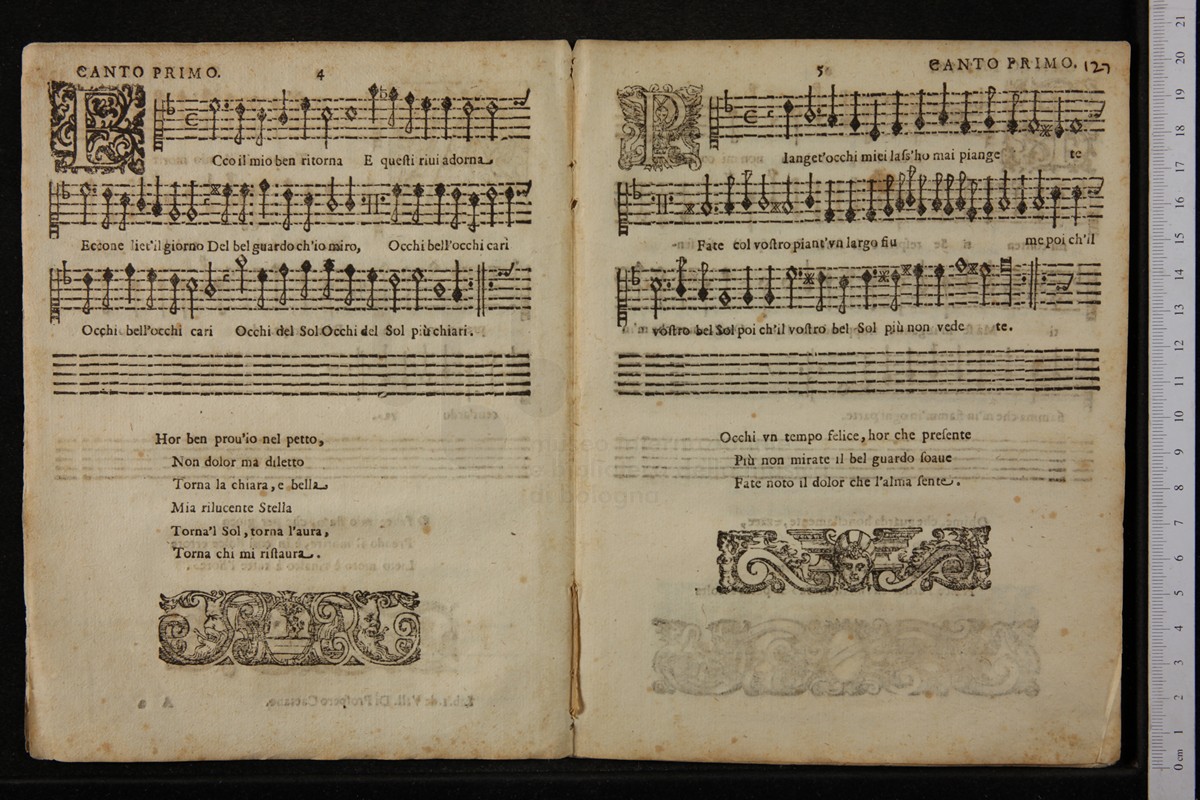 CANTO PRIMO. 4
ECco il mio ben ritorna E queſti riui adorna
Eccone liet'il giorno Del bel guardo ch'io miro, Occhi bell'occhi cari
Occhi bell'occhi cari Occhi del Sol Occhi del Sol più chiari.
Hor ben prou'io nel petto,
Non dolor ma diletto
Torna la chiara, e bella
Mia rilucente Stella
Torna'l Sol, torna l'aura,
Torna chi mi riſtaura.
5 CANTO PRIMO. 127
PIanget'occhi miei laſs'ho mai piange te
Fate col voſtro piant'vn largo fiu me poi ch'il
voſtro bel Sol poi ch'il voſtro bel Sol più non vede te.
Occhi vn tempo felice, hor che preſente
Più non mirate il bel guardo ſoaue
Fate noto il dolor che l'alma ſente.
museo
di bologna
0 cm 1 2 3 4 5 6 7 8 9 10 11 12 13 14 15 16 17 18 19 20 21